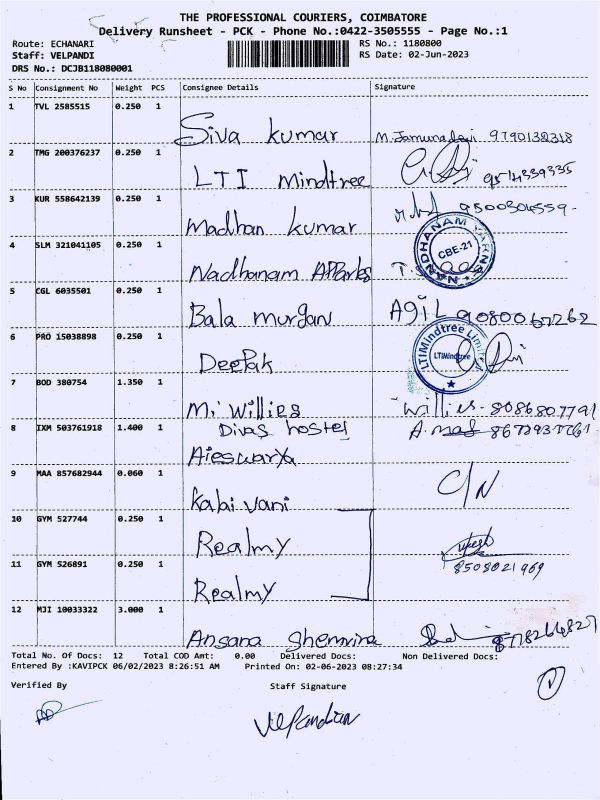 THE PROFESSIONAL COURIERS, COIMBATORE
Delivery Runsheet - PCK - Phone No.:0422-3505555 - Page No.:1
Route: ECHANARI RS No.: 1180800
Staff: VELPANDI RS Date: 02-Jun-2023
DRS No.: DCJB118080001
S No Consignment No Weight PCS Consignee Details Signature
1 TVL 2585515 0.250 1 Siva kumar M. Jamunadevi 9790138318
2 TMG 200376237 0.250 1 LTI Mindtree 9514339335
3 KUR 558642139 0.250 1 Madhan kumar 9500304559-
4 SLM 321041105 0.250 1 Nadhanam APParks
NANDHANAM YARNS CBE-21
5 CGL 6035501 0.250 1 Bala Murgan Agil 9080067262
6 PRO 15038898 0.250 1 Deepak
LTIMindtree Limited LTIMindtree
7 BOD 380754 1.350 1 Mi Willies Willies - 8086807791
8 IXM 503761918 1.400 1 Divas hostel
Aieswarya
9 MAA 857682944 0.060 1 Kalai vani C/N
10 GYM 527744 0.250 1 Realmy
11 GYM 526891 0.250 1 Realmy 8508021969
12 MJI 10033322 3.000 1 Ansana Shemrina
Total No. Of Docs: 12 Total COD Amt: 0.00 Delivered Docs: Non Delivered Docs:
Entered By :KAVIPCK 06/02/2023 8:26:51 AM Printed On: 02-06-2023 08:27:34
Verified By Staff Signature
Velpandian